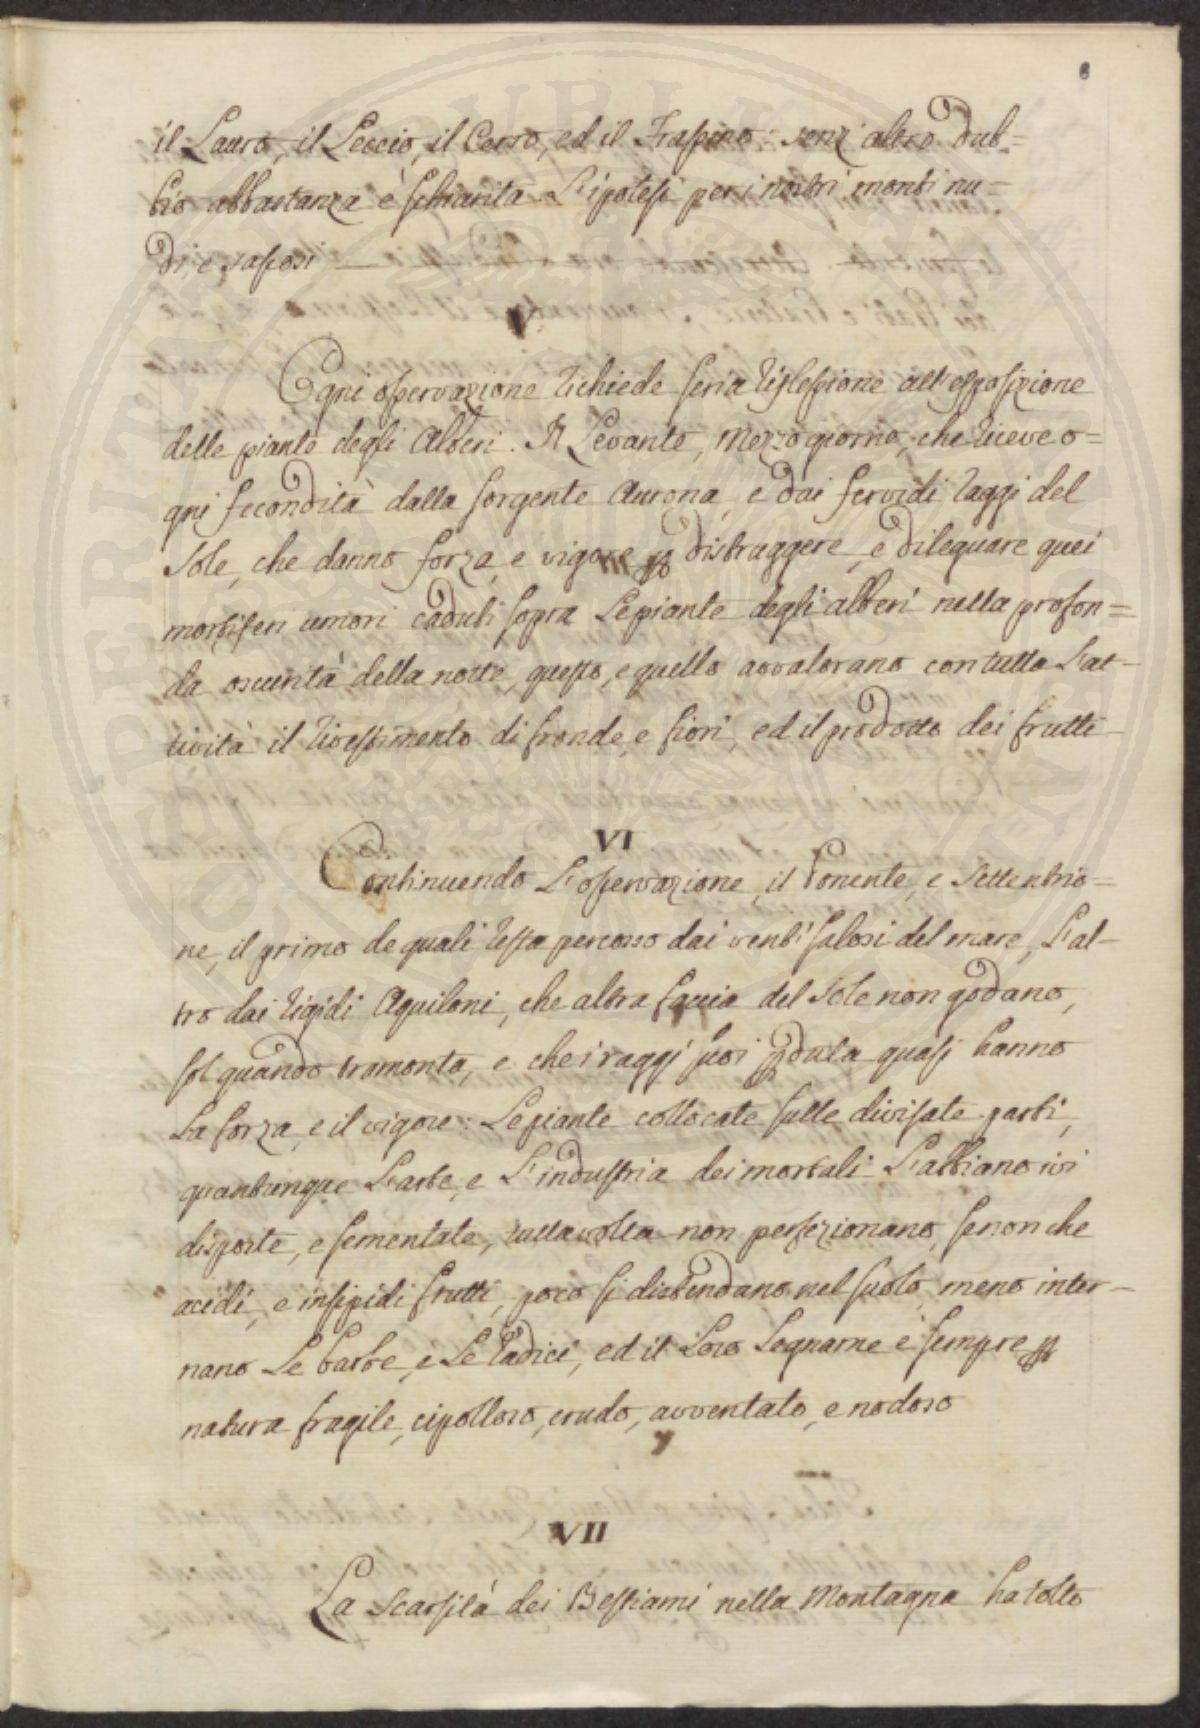 6
il Lauro, il Leccio, il Cerro, ed il Frassino: senz' altro dub=
bio abbastanza è schiarita L'ipotesi per i nostri monti nu=
di, e sassosi
V
Ogni osservazione richiede seria riflessione all'esposizione
delle piante degli Alberi. Il Levante, Mezzogiorno, che riceve o=
gni fecondità dalla sorgente Aurora, e dai fervidi raggi del
Sole, che danno forza, e vigore p distruggere, e dileguare quei
mortiferi umori caduti sopra Le piante degli alberi nella profon=
da oscurità della notte, questo, e quello avvalorano con tutta L'at-
tività il rivestimento di fronde, e fiori, ed il prodotto dei frutti
VI
Continuendo L'osservazione, il Ponente, e Settentrio=
ne, il primo de quali resta percosso dai venti salosi del mare, L'al-
tro dai rigidi Aquiloni, che altra faccia del Sole non godano,
sol quando tramonta, e che i raggi suoi pduta quasi hanno
La forza, e il vigore: Le piante collocate sulle divisate parti,
quantunque L'arte, e L'industria dei mortali L'abbiano ivi
disposte, e sementate, tuttavolta non perfezionano, senon che
acidi, e insipidi frutti, poco si distendano nel suolo, meno inter-
nano Le barbe, e Le radici, ed il Loro Legname è sempre p
natura fragile, cipolloso, crudo, avventato, e nodoso
VII
La Scarsità dei Bestiami nella Montagna ha tolto